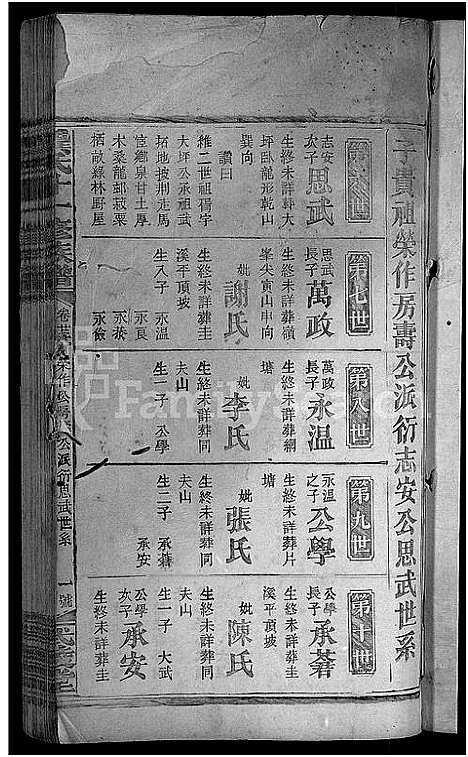 子貴祖榮作房壽公派衍志安公思武世系
第六世
志安
次子
思武
生終未詳葬大
坪臥龍形乾山
巽向
讚曰
維二世祖揚宇
大坪公承祖武
拓地披荆走馬
宦鄉泉甘土厚
木桑龍郵菽粟
栖畝綠林野屋
第七世
思武
長子
萬政
生終未詳葬嶺
峯尖寅山申向
妣
謝氏
生終未詳葬圭
溪平頂坡
生八子 永温
永良
永儉
第八世
萬政
長子
永温
生終未詳葬綱
塘
妣
李氏
生終未詳葬同
夫山
生一子 公學
第九世
永温
之子
公學
生終未詳葬片
塘
妣
張氏
生終未詳葬同
夫山
生二子 承蓍
承安
第十世
公學
長子
承蓍
生終未詳葬圭
溪平頂坡
妣
陳氏
生終未詳葬同
夫山
生一子 大武
公學
次子
承安
生終未詳葬圭
氏十一修族譜
公派衍思武世系
一號
FamilySearch